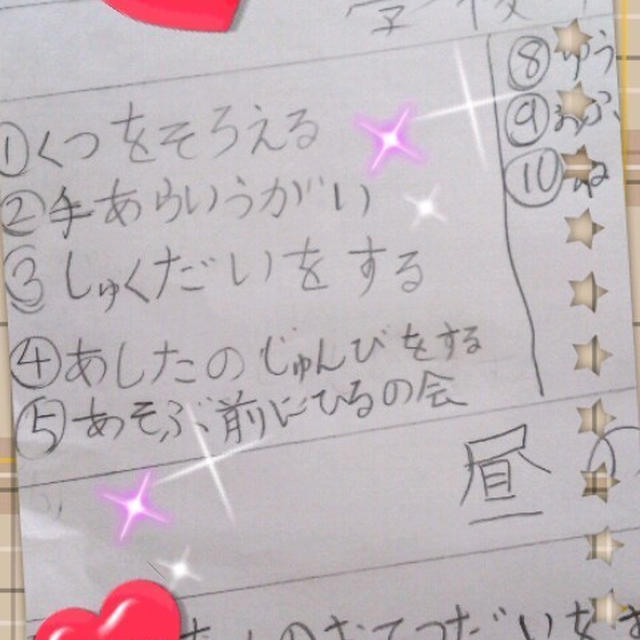 ①くつをそろえる
②手あらいうがい
③しゅくだいをする
④あしたのじゅんびをする
⑤あそぶ前にひるの会
⑧ゆう
⑨
⑩
昼
のおてつだいをす